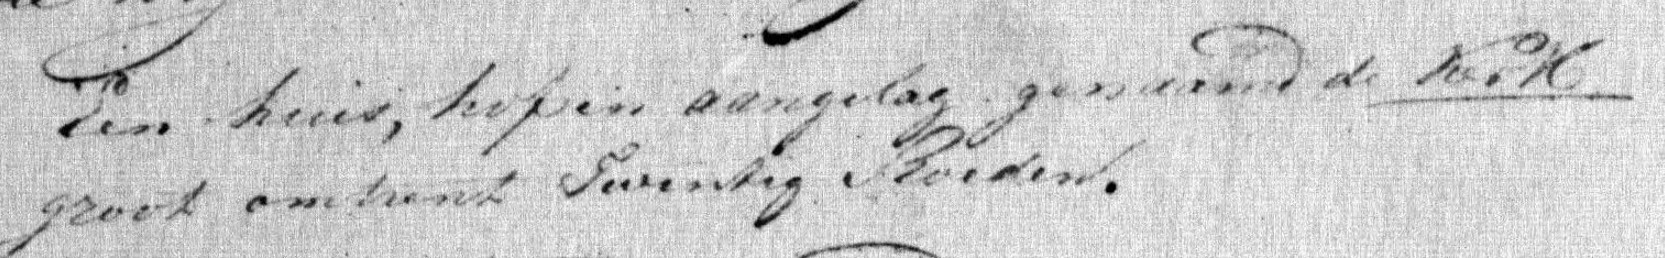 Een huis, hof en aangelag genaamd de Kolk
groot omtrent Twentig Roeden.